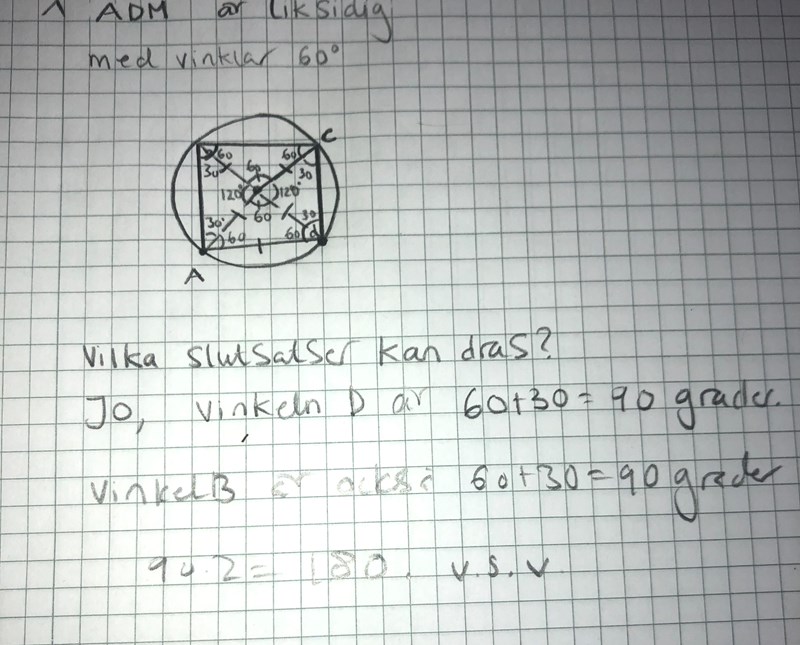 Δ ADM är liksidig
med vinklar 60°
C
60 60
30 60 30
120° 120°
30° 60 30
60 60 d
A
Vilka slutsatser kan dras?
Jo, vinkeln D är 60+30=90 grader.
Vinkel B är också 60+30=90 grader
90·2=180. v.s.v